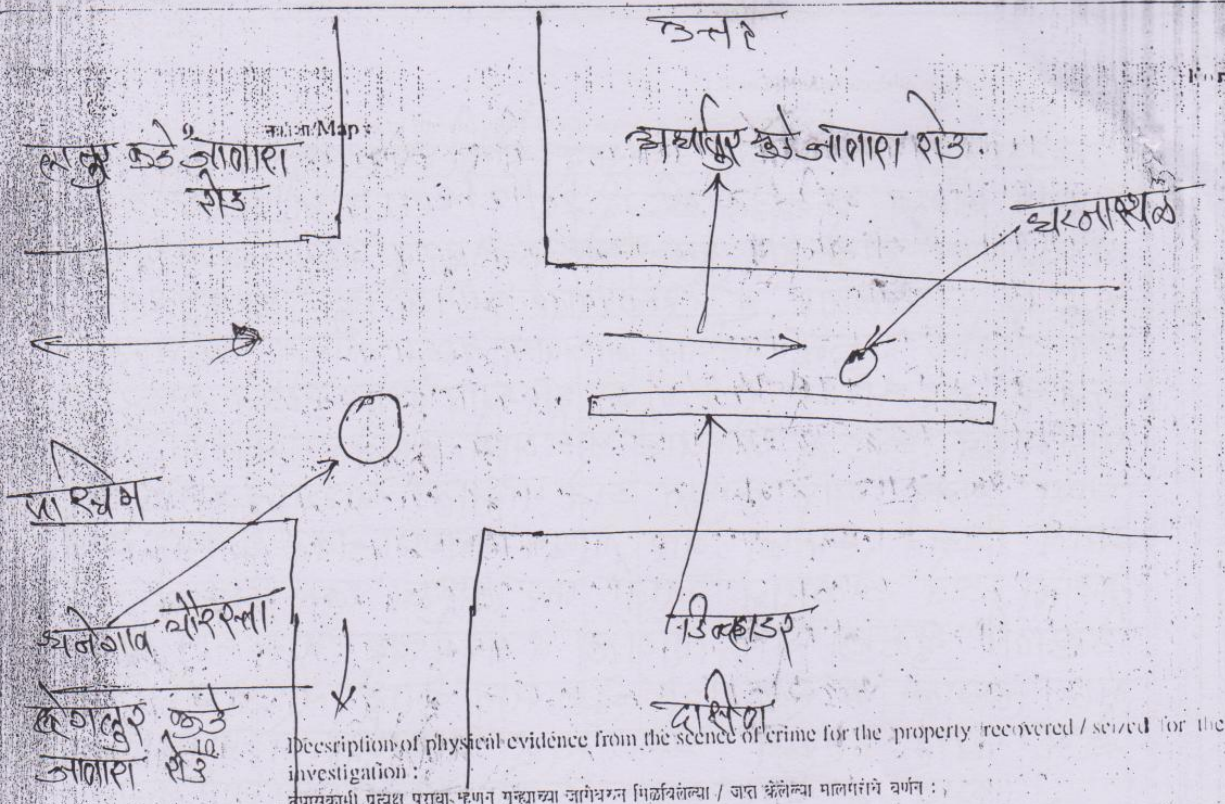 उत्तर
For
नकाशा/Map :
लातुर कडे जाणारा
रोड
अर्धापुर कडे जाणारा रोड.
घटनास्थळ
पश्चिम
धनेगाव चौरस्ता
डिव्हाडर
देगलुर कडे
जाणारा रोड
दक्षिण
9
10
Decsription of physical evidence from the scence of crime for the property recovered / seized for the
investigation :
तपासकामी प्रत्यक्ष पुरावा म्हणून गुन्ह्याच्या जागेवरुन मिळविलेल्या / जप्त केलेल्या मालमत्तेचे वर्णन :